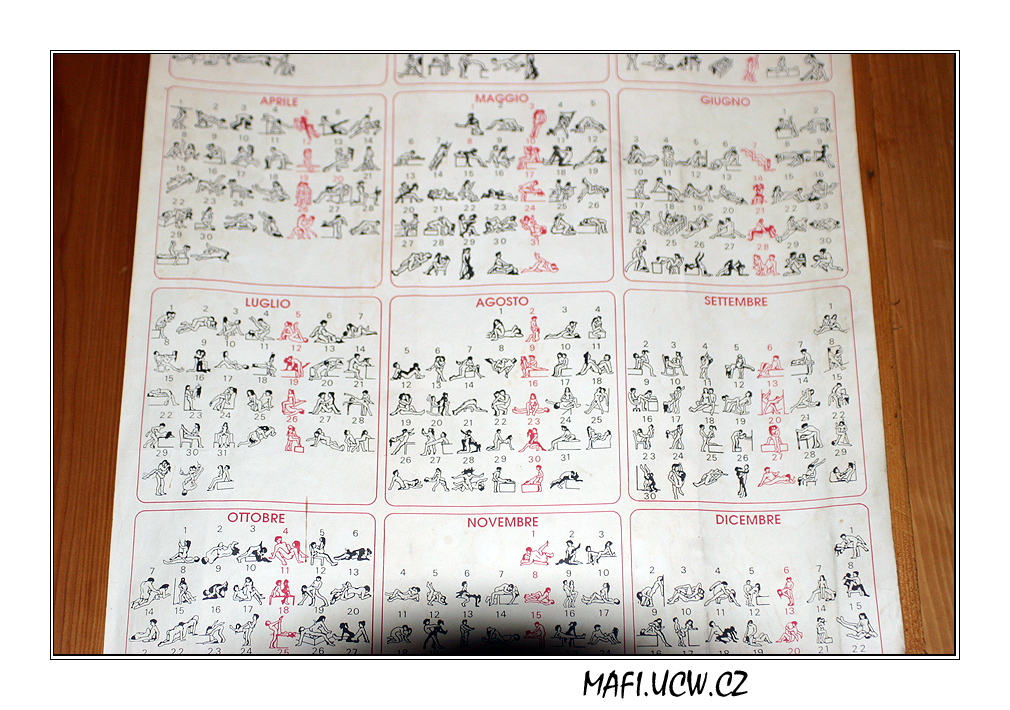 APRILE
1 2 3 4 5 6 7
8 9 10 11 12 13 14
15 16 17 18 19 20 21
22 23 24 25 26 27 28
29 30
MAGGIO
1 2 3 4 5
6 7 8 9 10 11 12
13 14 15 16 17 18 19
20 21 22 23 24 25 26
27 28 29 30 31
GIUGNO
1 2
3 4 5 6 7 8 9
10 11 12 13 14 15 16
17 18 19 20 21 22 23
24 25 26 27 28 29 30
LUGLIO
1 2 3 4 5 6 7
8 9 10 11 12 13 14
15 16 17 18 19 20 21
22 23 24 25 26 27 28
29 30 31
AGOSTO
1 2 3 4
5 6 7 8 9 10 11
12 13 14 15 16 17 18
19 20 21 22 23 24 25
26 27 28 29 30 31
SETTEMBRE
1
2 3 4 5 6 7 8
9 10 11 12 13 14 15
16 17 18 19 20 21 22
23 24 25 26 27 28 29
30
OTTOBRE
1 2 3 4 5 6
7 8 9 10 11 12 13
14 15 16 17 18 19 20
21 22 23 24 25 26 27
NOVEMBRE
1 2 3
4 5 6 7 8 9 10
11 12 13 14 15 16 17
DICEMBRE
1
2 3 4 5 6 7 8
9 10 11 12 13 14 15
20 21 22
MAFI.UCW.CZ